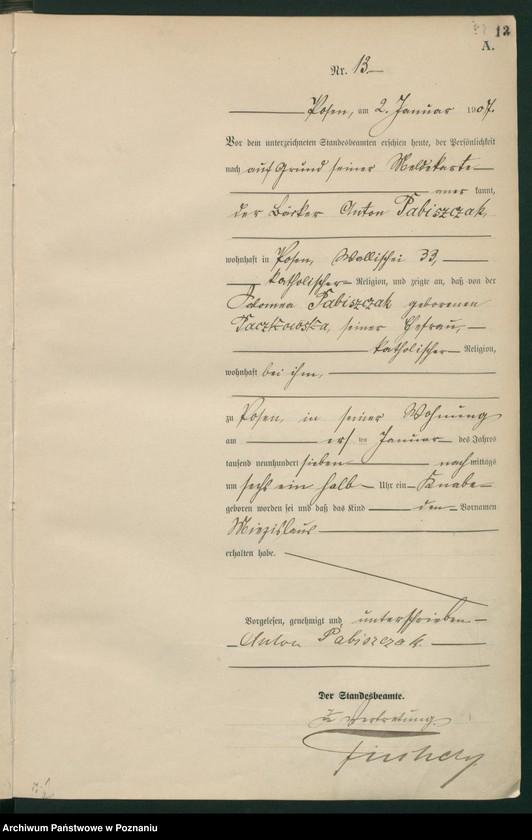 12
A.
Nr. 13
Posen, am 2. Januar 1907.
Vor dem unterzeichneten Standesbeamten erschien heute, der Persönlichkeit
nach auf Grund seiner Meldekarte
aner kannt,
der Bäcker Anton Pabiszczak,
wohnhaft in Posen, Wallischei 33,
katholischer Religion, und zeigte an, daß von der
Salomea Pabiszczak geborenen
Paczkowska, seiner Ehefrau,
katholischer Religion,
wohnhaft bei ihm,
zu Posen, in seiner Wohnung
am ersten Januar des Jahres
tausend neunhundert sieben nach mittags
um sechs ein halb Uhr ein Knabe
geboren worden sei und daß das Kind den Vornamen
Miezislaus
erhalten habe.
Vorgelesen, genehmigt und unterschrieben
Anton Pabiszczak.
Der Standesbeamte.
In Vertretung.
Archiwum Państwowe w Poznaniu